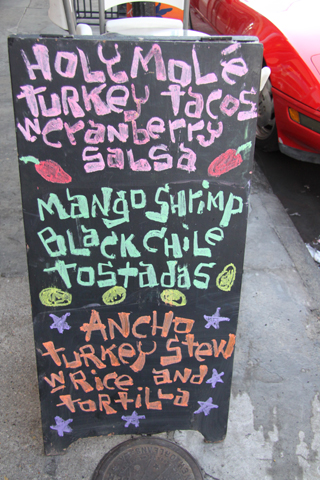 Holy Molé
turkey tacos
w cranberry
salsa
Mango Shrimp
Black Chile
tostadas
Ancho
turkey stew
w Rice and
tortilla